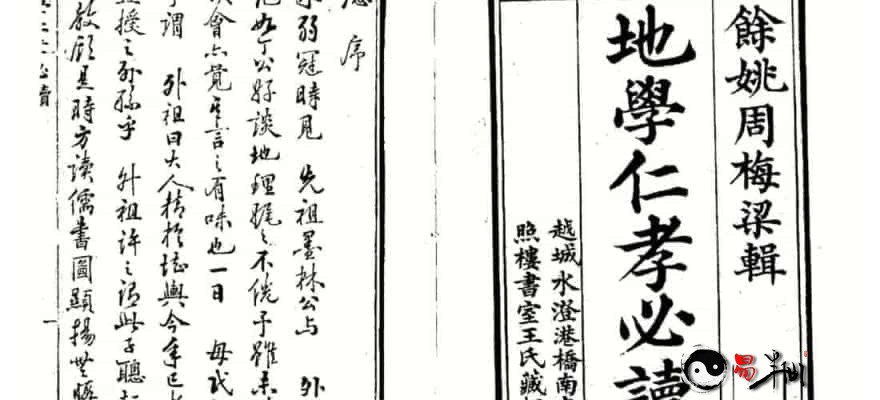 餘姚周梅梁輯
地學仁孝必讀
越城水澄港橋南
照樓書室王氏藏
序
弱冠時見 先祖墨林公与 外
公好談地理娓之不倦予雖未
會亦覺其言之有味也一日 母
謂 外祖曰大人精於堪輿今年已
授之外孫乎 外祖許之謂此子聰
教顧是時方讀儒書圖顯揚無暇
必讀
一
易